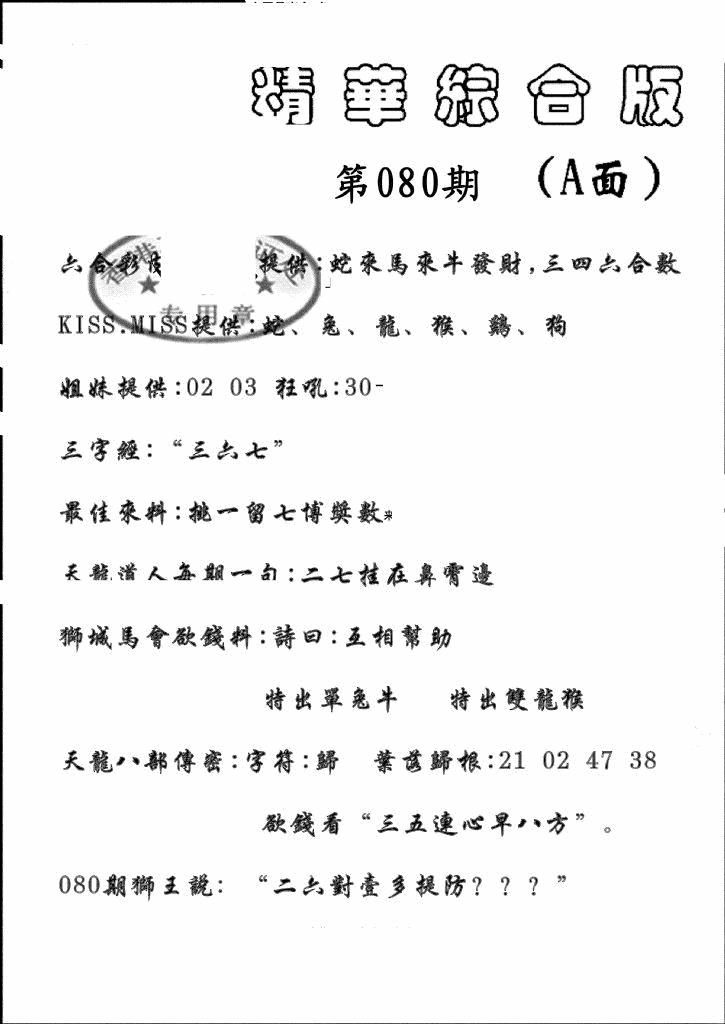 精華綜合版
第080期 （A面）
六合彩 提供:蛇來馬來牛發財,三四六合數
專用章
KISS.MISS提供:蛇、兔、龍、猴、鷄、狗
姐妹提供:02 03 狂吼:30-
三字經:“三六七”
最佳來料:挑一留七博獎數*
天龍道人每期一句:二七挂在鼻霄邊
獅城馬會欲錢料:詩曰:互相幫助
特出單兔牛 特出雙龍猴
天龍八部傳密:字符:歸 葉落歸根:21 02 47 38
欲錢看“三五連心早八方”。
080期獅王説: “二六對壹多提防? ? ? ”